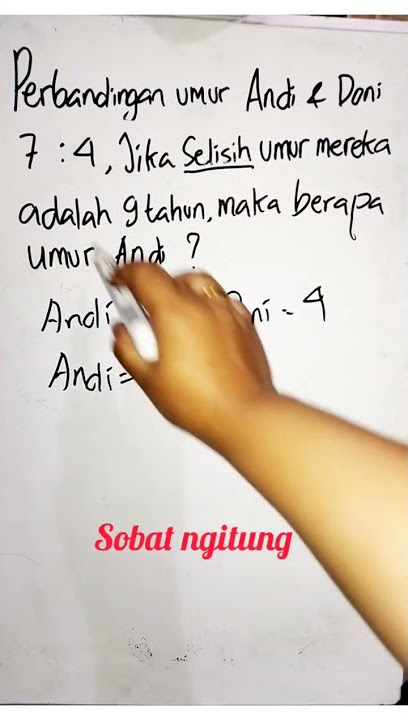 Perbandingan umur Andi & Doni
7 : 4, Jika Selisih umur mereka
adalah 9 tahun, maka berapa
umur Andi ?
Andi - 4
Andi =
Sobat ngitung